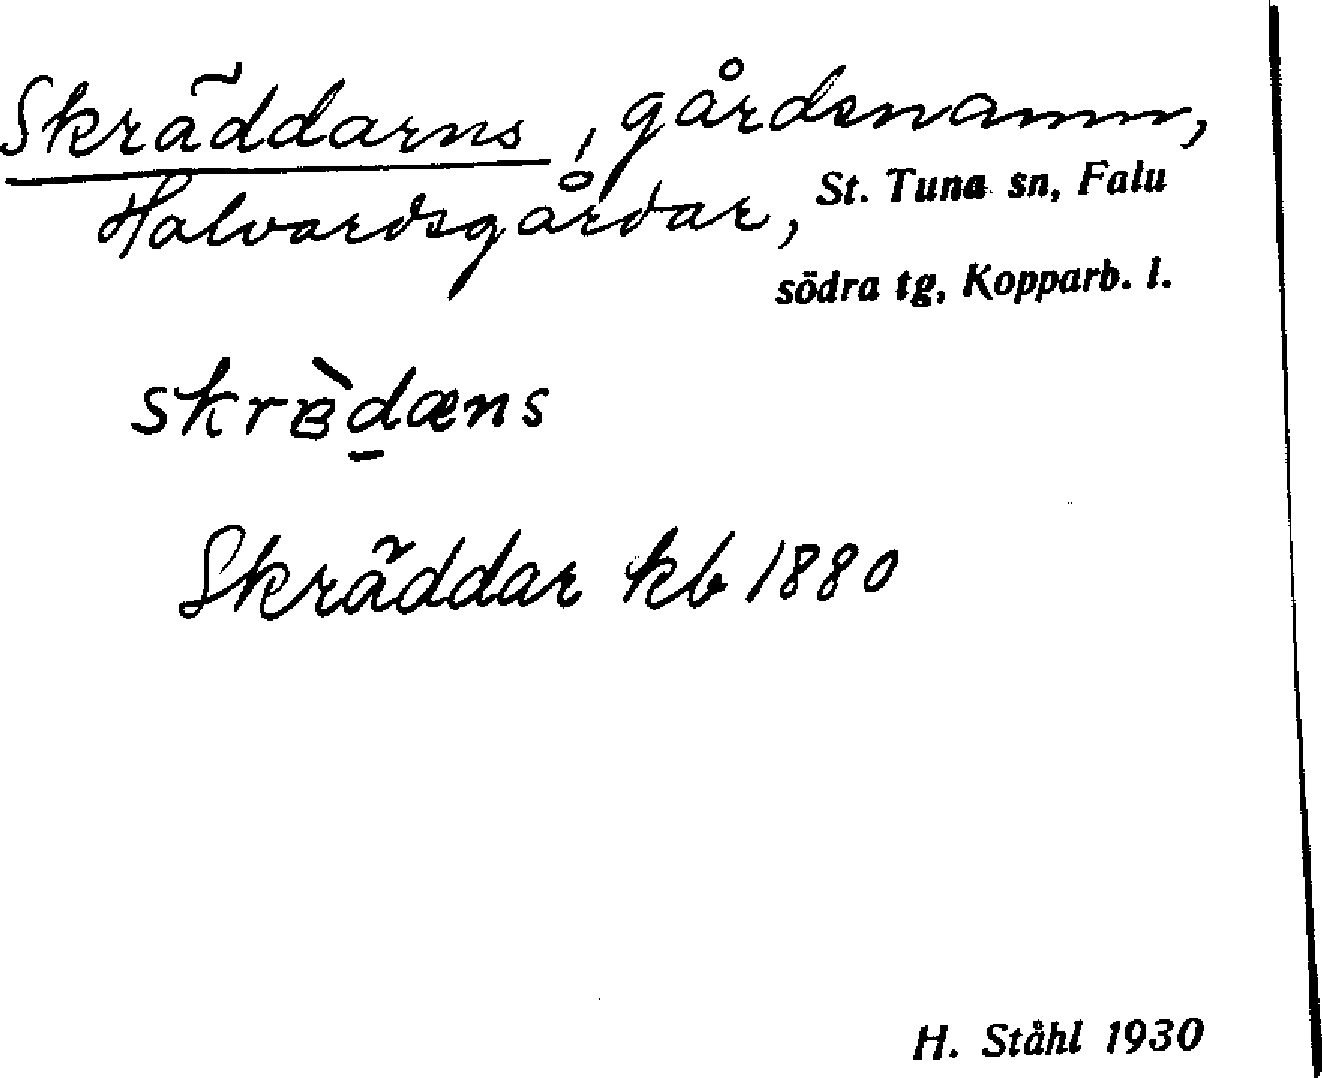 Skräddarns, gårdsnamn,
Halvardsgårdar, St. Tuna sn, Falu
södra tg, Kopparb. l.
skrɞ̀d̠æns
Skräddar kb 1880
H. Ståhl 1930